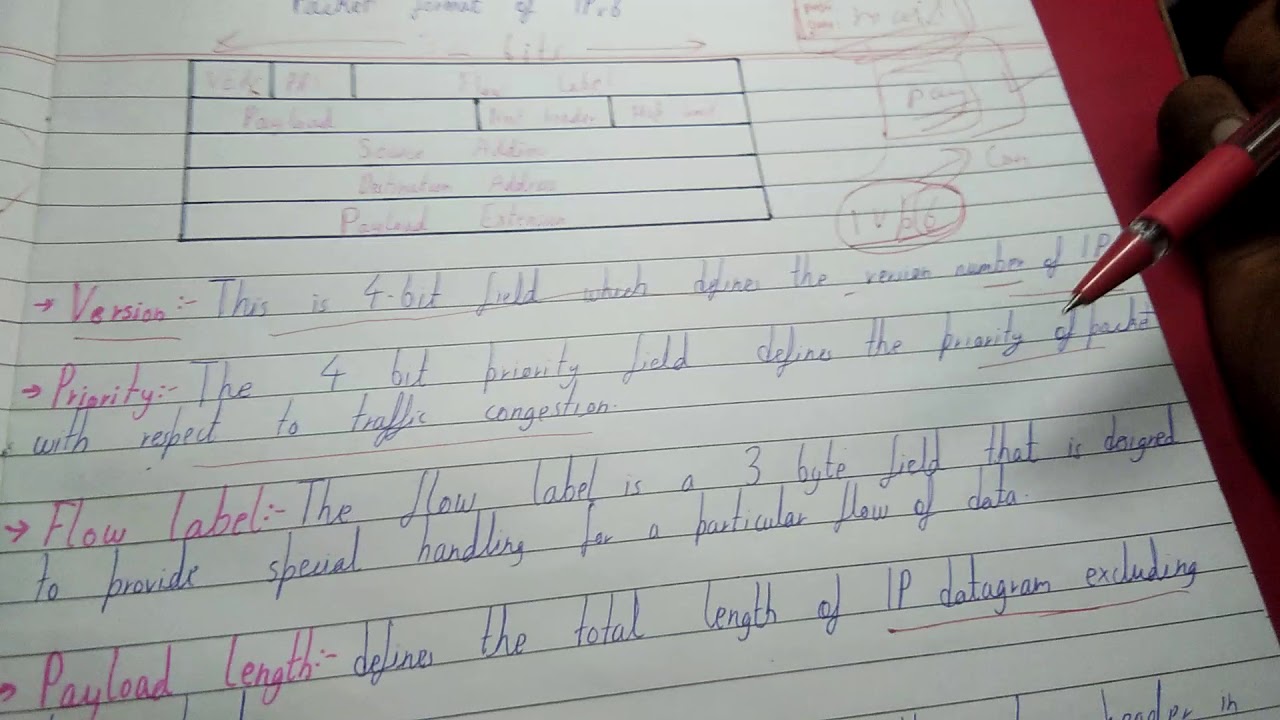 Packet format of IPv6
bits
VERS PRI Flow label
Payload Next header
Source Address
Destination Address
Payload Extension
pay
Can
→ Version:- This is 4-bit field which defines the version number of IP
→ Priority:- The 4 bit priority field defines the priority of packet
with respect to traffic congestion.
→ Flow label:- The flow label is a 3 byte field that is designed
to provide special handling for a particular flow of data.
→ Payload length:- defines the total length of IP datagram excluding
header in